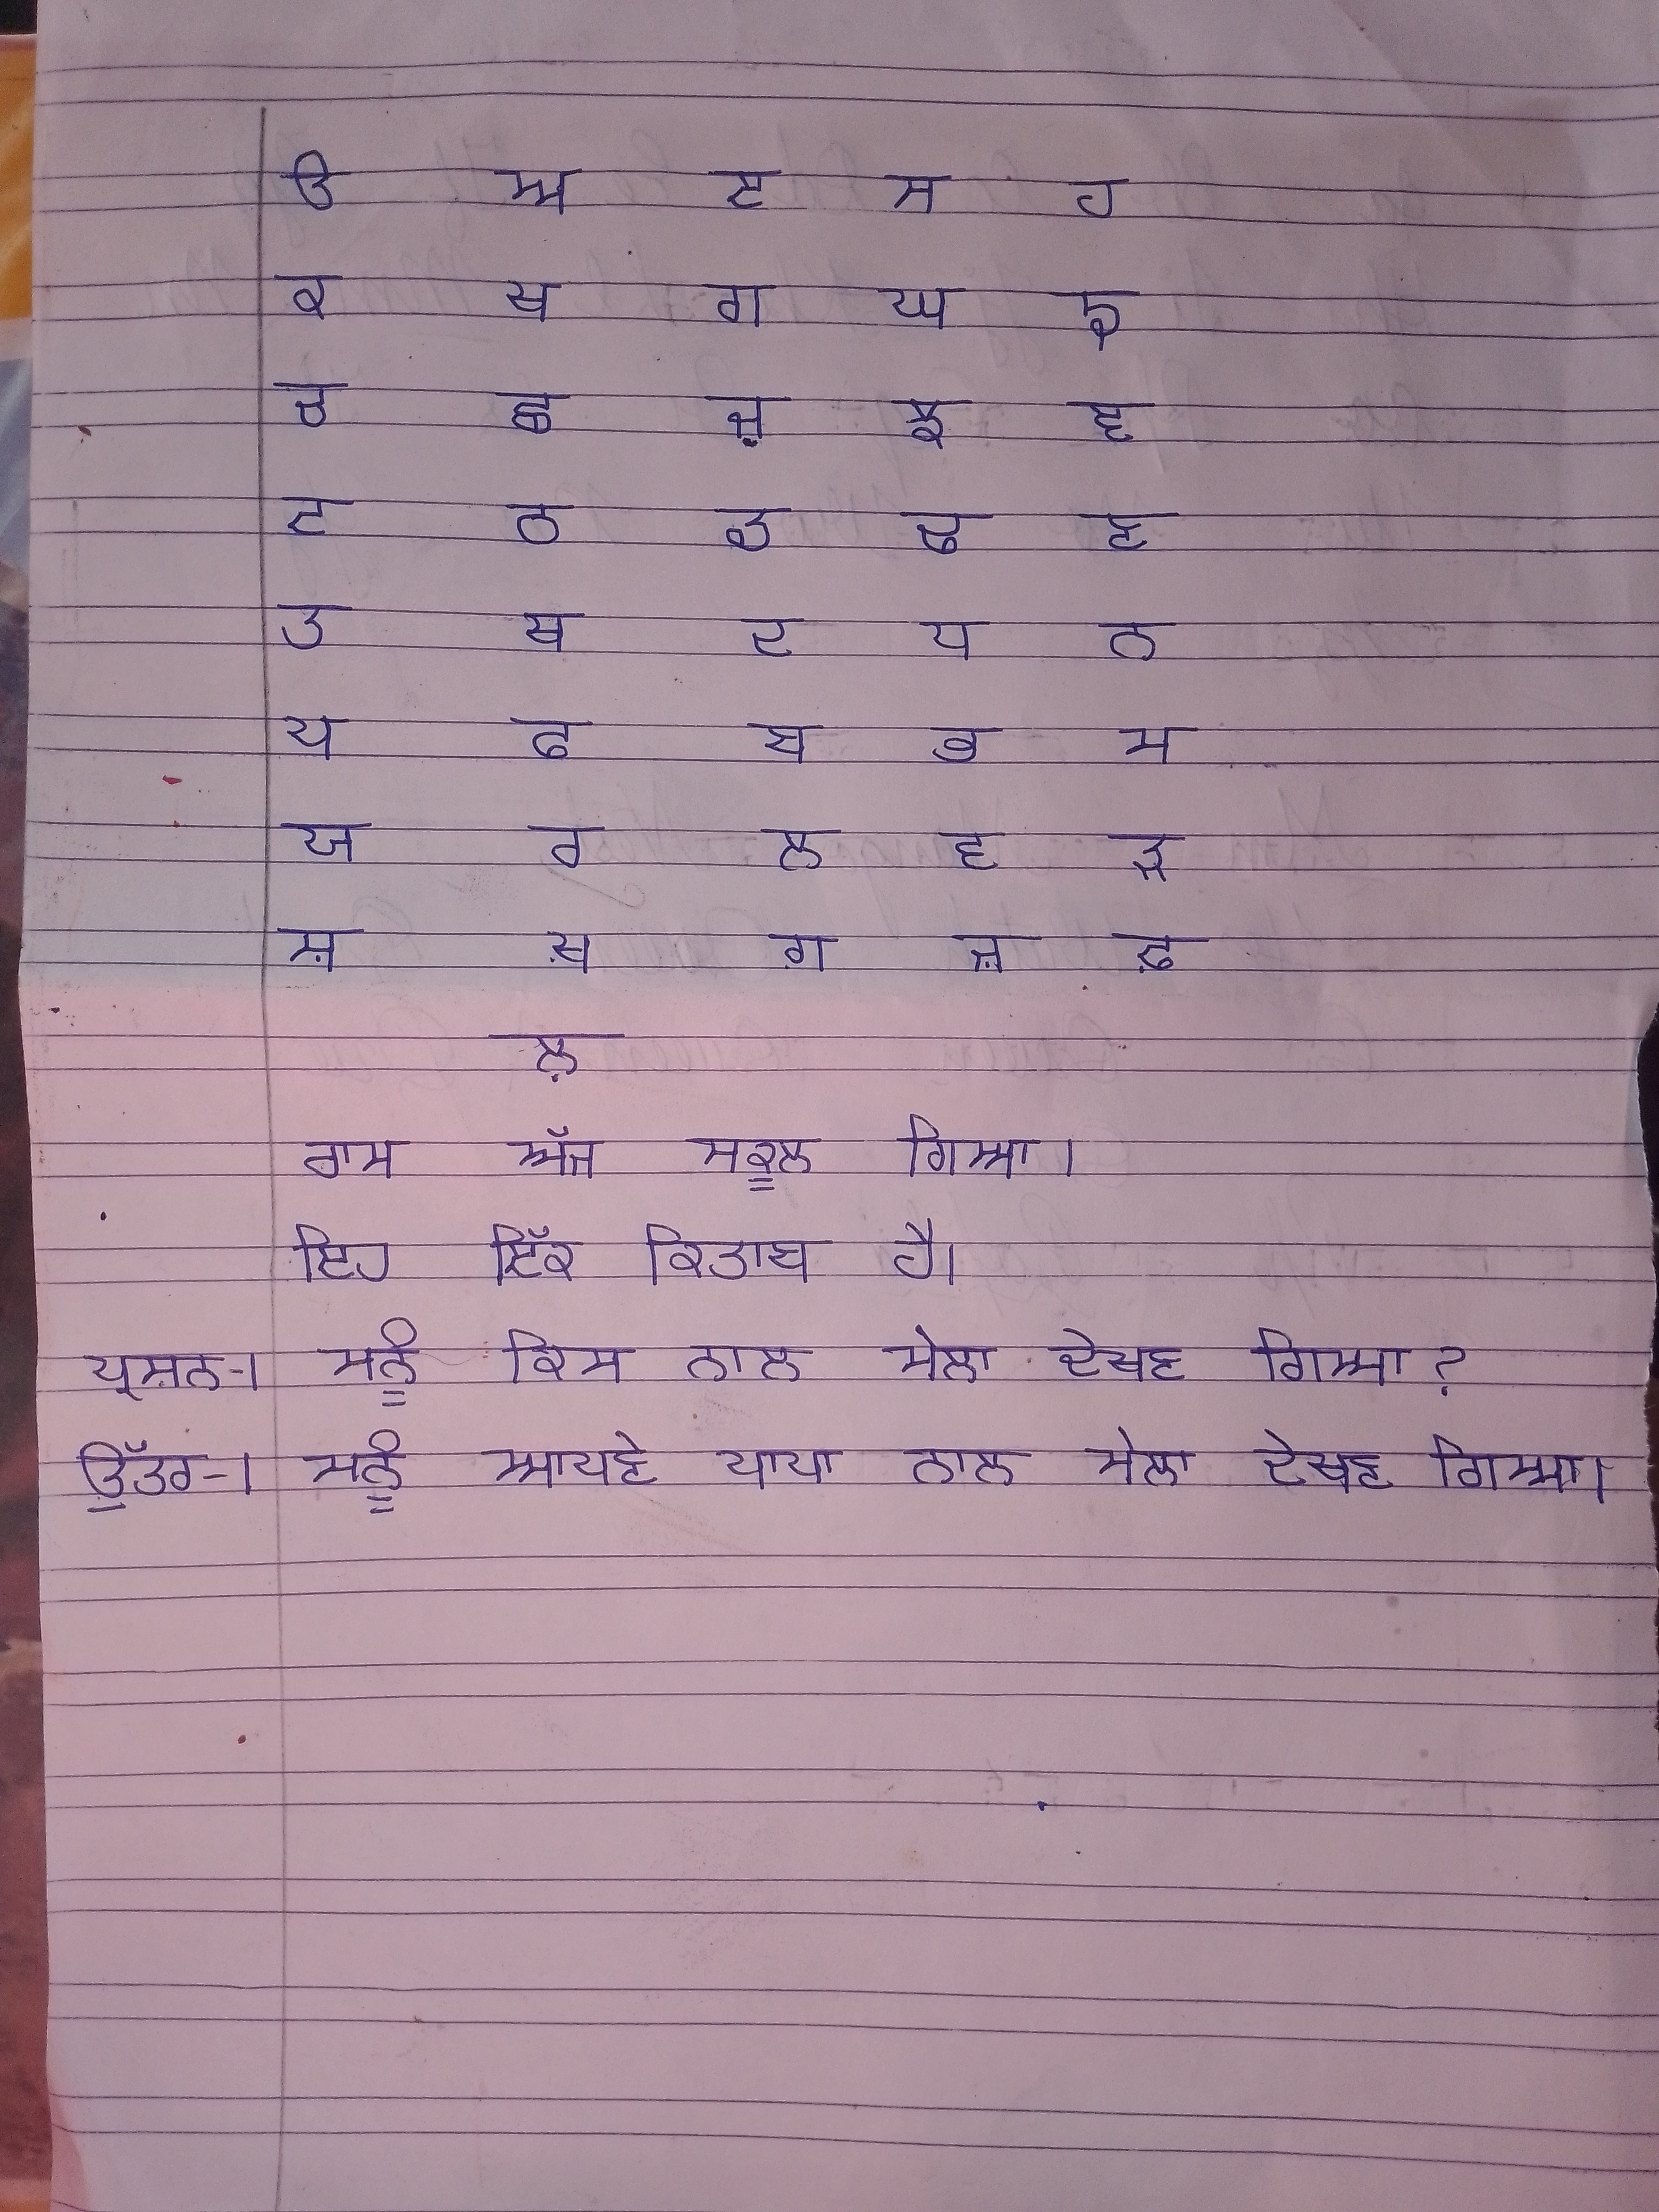 ੳ ਅ ੲ ਸ ਹ
ਕ ਖ ਗ ਘ ਙ
ਚ ਛ ਜ਼ ਝ ਞ
ਟ ਠ ਡ ਢ ਣ
ਤ ਥ ਦ ਧ ਨ
ਪ ਫ ਬ ਭ ਮ
ਯ ਰ ਲ ਵ ੜ
ਸ਼ ਖ਼ ਗ਼ ਜ਼ ਫ਼
ਲ਼
ਰਾਮ ਅੱਜ ਸਕੂਲ ਗਿਆ।
ਇਹ ਇੱਕ ਕਿਤਾਬ ਹੈ।
ਪ੍ਰਸ਼ਨ-1 ਸੋਨੂੰ ਕਿਸ ਨਾਲ ਮੇਲਾ ਦੇਖਣ ਗਿਆ?
ਉੱਤਰ-1 ਸੋਨੂੰ ਆਪਣੇ ਪਾਪਾ ਨਾਲ ਮੇਲਾ ਦੇਖਣ ਗਿਆ।